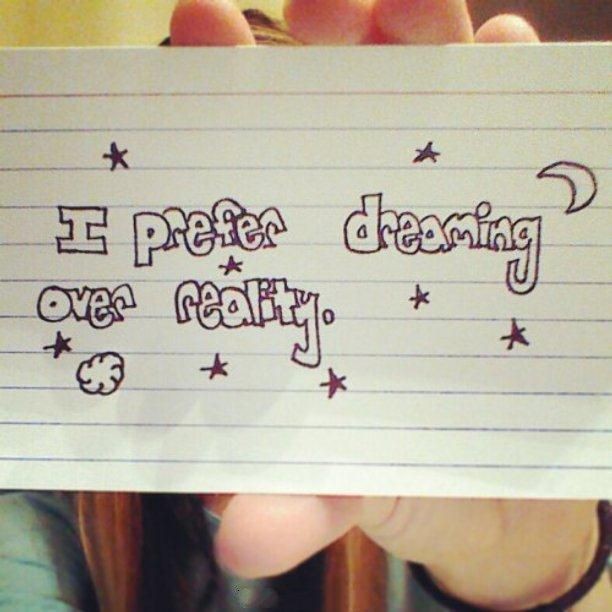 I prefer dreaming
over reality.